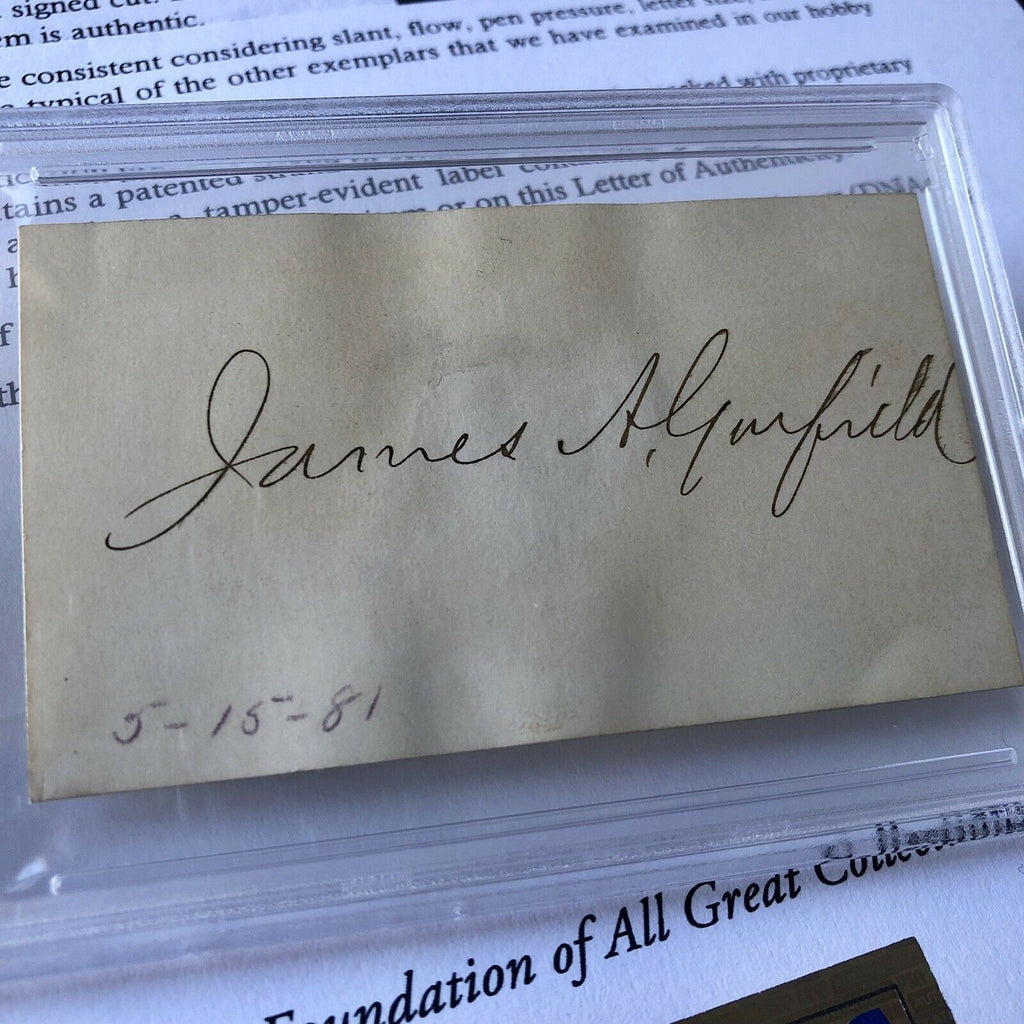 signed cut.
em is authentic.
e consistent considering slant, flow, pen pressure, letter size,
typical of the other exemplars that we have examined in our hobby
with proprietary
tains a patented
tamper-evident label
or on this Letter of Authenticity
/DNA
f
th
James A. Garfield
5-15-81
Foundation of All Great